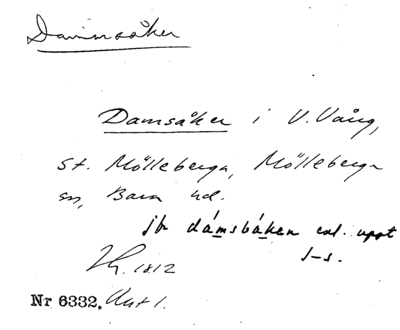 Dammsåker
Damsåker i V. Vång,
St. Mölleberga, Mölleberga
sn, Bara hd.
jfr dámsbáken enl. uppt
J-s.
1812
Nr 6332.